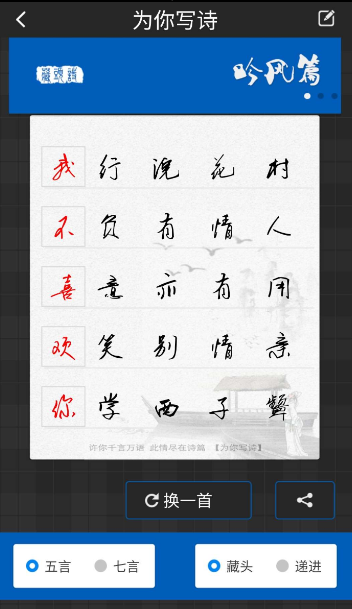 为你写诗
藏头诗
吟风篇
我行浣花村
不负有情人
喜意亦有用
欢笑别情亲
你学西子颦
许你千言万语 此情尽在诗篇 【为你写诗】
换一首
五言 七言 藏头 递进